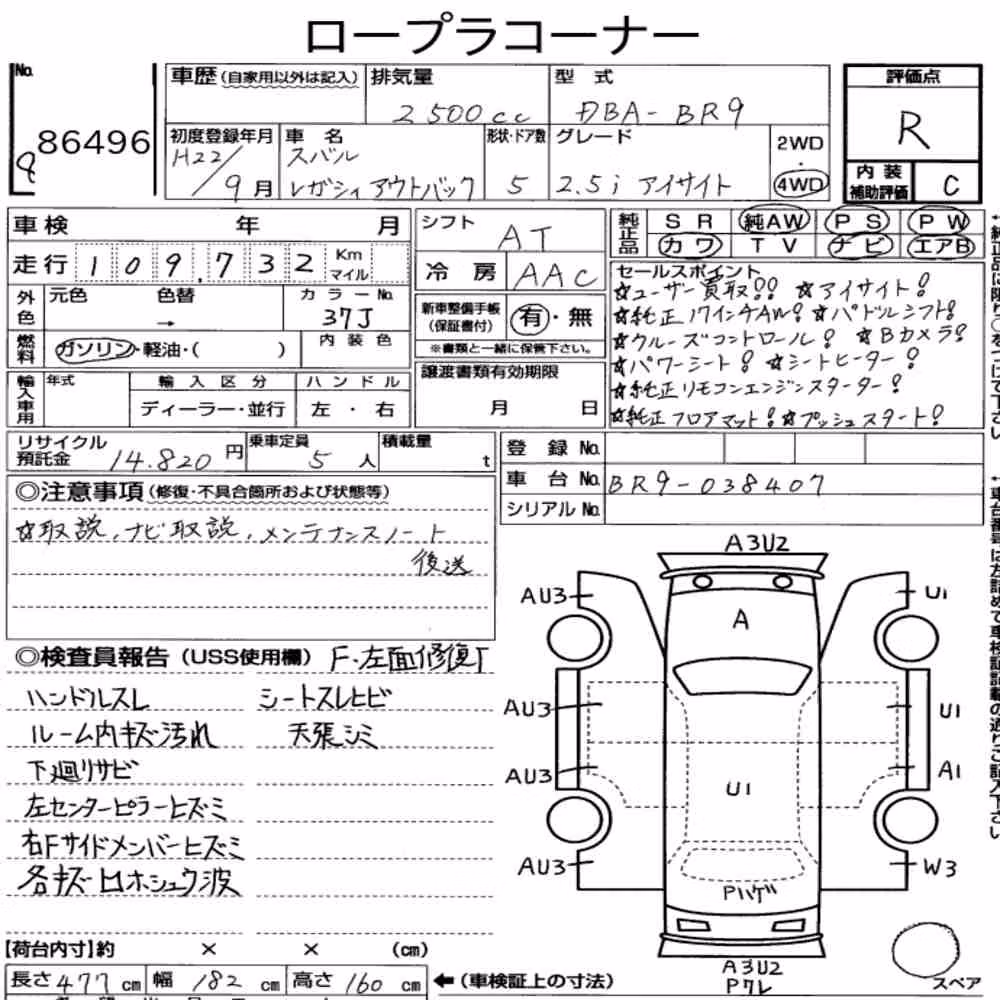 ロープラコーナー
No. 8 86496
車歴(自家用以外は記入)
排気量 2500cc
型式 DBA-BR9
評価点 R
内装補助評価 C
初度登録年月 H22/9月
車名 スバル レガシィ アウトバック
形状・ドア数 5
グレード 2.5i アイサイト
2WD・4WD
車検 年 月
走行 109,732 Km マイル
外色 元色 色替 → カラーNo. 37J
燃料 ガソリン・軽油・( ) 内装色
輸入車用 年式 輸入区分 ディーラー・並行 ハンドル 左・右
シフト AT
冷房 AAC
新車整備手帳(保証書付) 有・無
※書類と一緒に保管下さい。
譲渡書類有効期限 月 日
純正品 SR 純AW PS PW
カワ TV ナビ エアB
セールスポイント
☆ユーザー買取!! ☆アイサイト!
☆純正17インチAW! ☆パドルシフト!
☆クルーズコントロール! ☆Bカメラ!
☆パワーシート! ☆シートヒーター!
☆純正リモコンエンジンスターター!
☆純正フロアマット! ☆プッシュスタート!
リサイクル預託金 14.820円
乗車定員 5人
積載量 t
登録No.
車台No. BR9-038407
シリアルNo.
◎注意事項(修復・不具合箇所および状態等)
☆取説、ナビ取説、メンテナンスノート
後送
◎検査員報告(USS使用欄) F、左面修復
ハンドルスレ シートスレヒビ
ルーム内キズ汚れ 天張シミ
下廻りサビ
左センターピラーヒズミ
右Fサイドメンバーヒズミ
各キズ凹ホシュウ波
A3U2
AU3 U1
A
AU3 U1
AU3 A1
U1
AU3 W3
Pハゲ
A3U2
Pワレ
スペア
【荷台内寸】約 × × (cm)
長さ 477 cm 幅 182 cm 高さ 160 cm ←(車検証上の寸法)